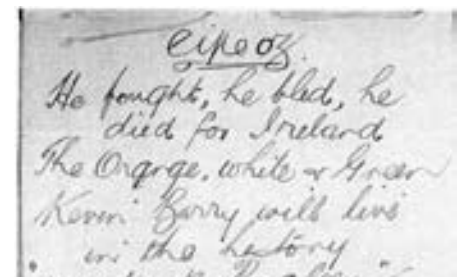 eire óg.
He fought, he bled, he
died for Ireland
The Orange, white & Green
Kevin Barry will live
in the history